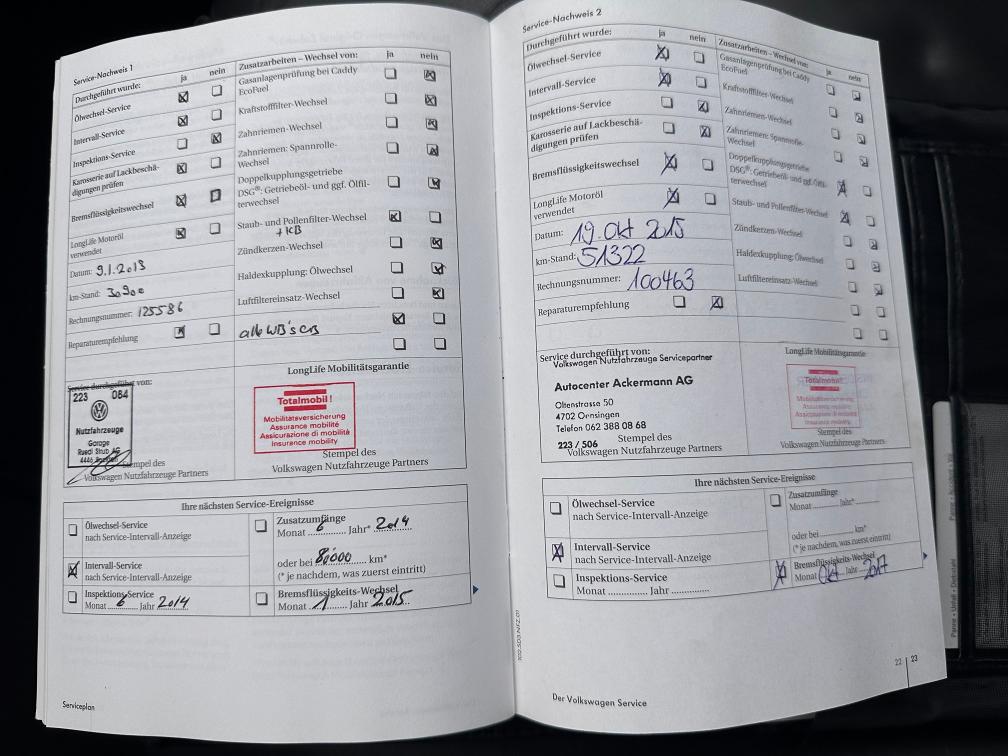 Service-Nachweis 1
Durchgeführt wurde: ja nein
Ölwechsel-Service
Intervall-Service
Inspektions-Service
Karosserie auf Lackbeschä-
digungen prüfen
Bremsflüssigkeitswechsel
LongLife Motoröl
verwendet
Datum: 9.1.2013
km-Stand: 30900
Rechnungsnummer: 125586
Reparaturempfehlung
Zusatzarbeiten – Wechsel von: ja nein
Gasanlagenprüfung bei Caddy
EcoFuel
Kraftstofffilter-Wechsel
Zahnriemen-Wechsel
Zahnriemen: Spannrolle-
Wechsel
Doppelkupplungsgetriebe
DSG®: Getriebeöl- und ggf. Ölfil-
terwechsel
Staub- und Pollenfilter-Wechsel
+KB
Zündkerzen-Wechsel
Haldexkupplung: Ölwechsel
Luftfiltereinsatz-Wechsel
Service durchgeführt von:
223 084
Nutzfahrzeuge
Garage
Ruedi Strub AG
Stempel des
Volkswagen Nutzfahrzeuge Partners
LongLife Mobilitätsgarantie
Totalmobil!
Mobilitätsversicherung
Assurance mobilité
Assicurazione di mobilità
Insurance mobility
Stempel des
Volkswagen Nutzfahrzeuge Partners
Ihre nächsten Service-Ereignisse
Ölwechsel-Service
nach Service-Intervall-Anzeige
Intervall-Service
nach Service-Intervall-Anzeige
Inspektions-Service
Monat 6 Jahr 2014
Zusatzumfänge
Monat 6 Jahr* 2014
oder bei 8'000 km*
(* je nachdem, was zuerst eintritt)
Bremsflüssigkeits-Wechsel
Monat 1 Jahr 2015
Serviceplan
Service-Nachweis 2
Durchgeführt wurde: ja nein
Ölwechsel-Service
Intervall-Service
Inspektions-Service
Karosserie auf Lackbeschä-
digungen prüfen
Bremsflüssigkeitswechsel
LongLife Motoröl
verwendet
Datum: 19. Okt 2015
km-Stand: 51322
Rechnungsnummer: 100463
Reparaturempfehlung
Zusatzarbeiten – Wechsel von: ja nein
Gasanlagenprüfung bei Caddy
EcoFuel
Kraftstofffilter-Wechsel
Zahnriemen-Wechsel
Zahnriemen: Spannrolle-
Wechsel
Doppelkupplungsgetriebe
DSG®: Getriebeöl- und ggf. Ölfil-
terwechsel
Staub- und Pollenfilter-Wechsel
Zündkerzen-Wechsel
Haldexkupplung: Ölwechsel
Luftfiltereinsatz-Wechsel
Service durchgeführt von:
Volkswagen Nutzfahrzeuge Servicepartner
Autocenter Ackermann AG
Oltenstrasse 50
4702 Oensingen
Telefon 062 388 08 68
223 / 506
Stempel des
Volkswagen Nutzfahrzeuge Partners
LongLife Mobilitätsgarantie
Totalmobil!
Mobilitätsversicherung
Assurance mobilité
Assicurazione di mobilità
Insurance mobility
Stempel des
Volkswagen Nutzfahrzeuge Partners
Ihre nächsten Service-Ereignisse
Ölwechsel-Service
nach Service-Intervall-Anzeige
Intervall-Service
nach Service-Intervall-Anzeige
Inspektions-Service
Monat Jahr
Zusatzumfänge
Monat Jahr*
oder bei km*
(* je nachdem, was zuerst eintritt)
Bremsflüssigkeits-Wechsel
Monat Okt Jahr 2017
Der Volkswagen Service
22 | 23